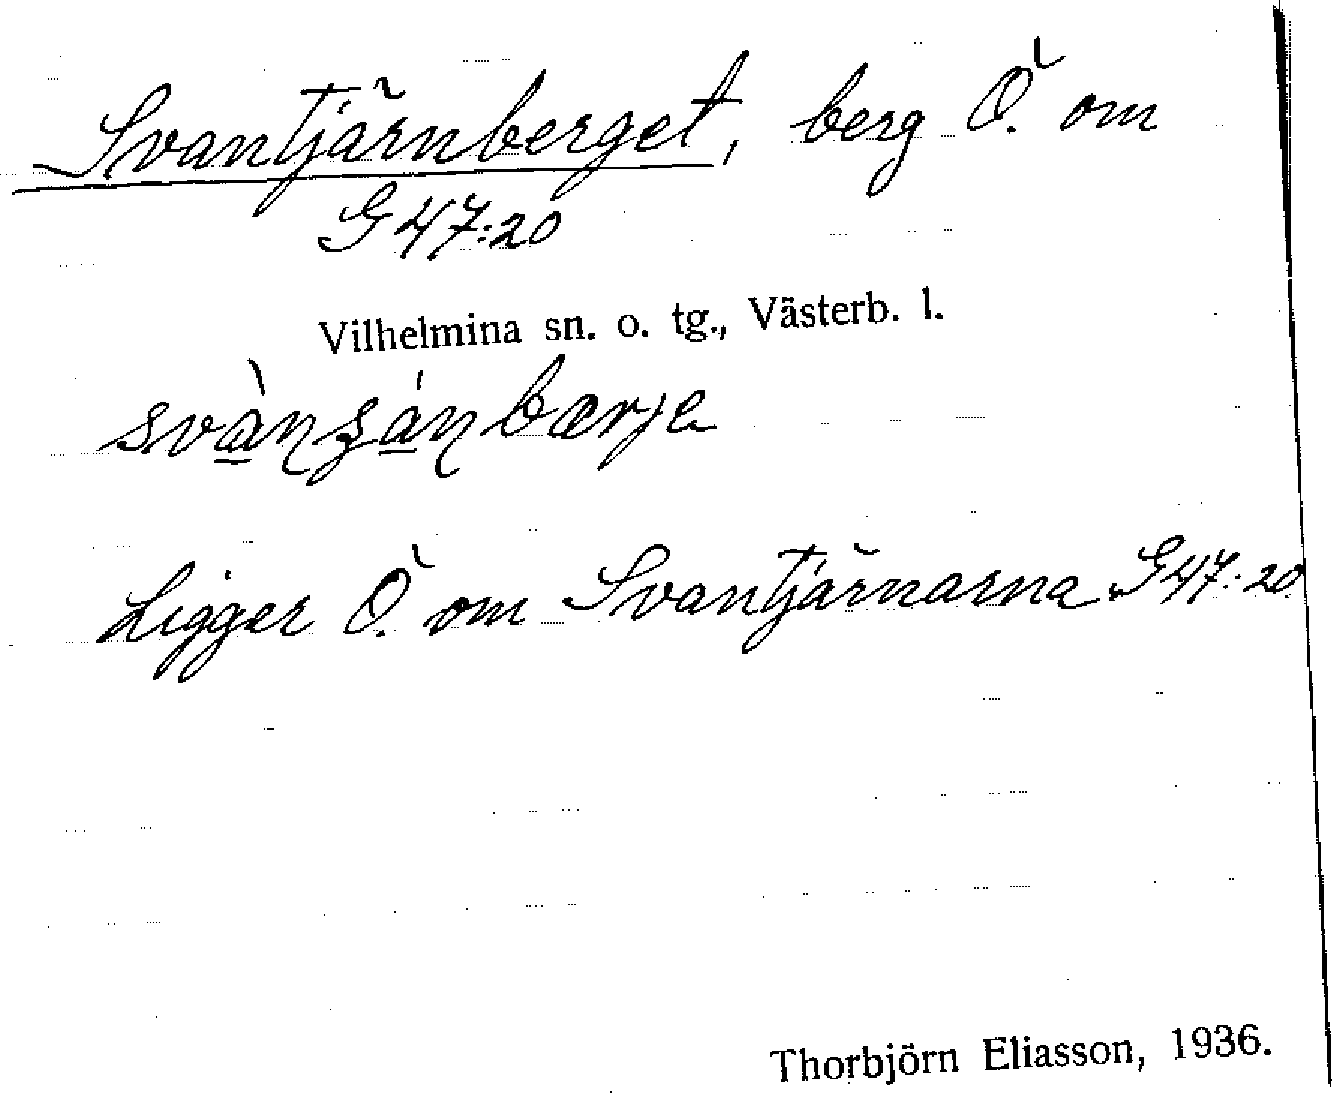 Svantjärnberget, berg Ö. om
G 47:20
Vilhelmina sn. o. tg., Västerb. l.
Ligger Ö. om Svantjärnarna G 47:20
Thorbjörn Eliasson, 1936.